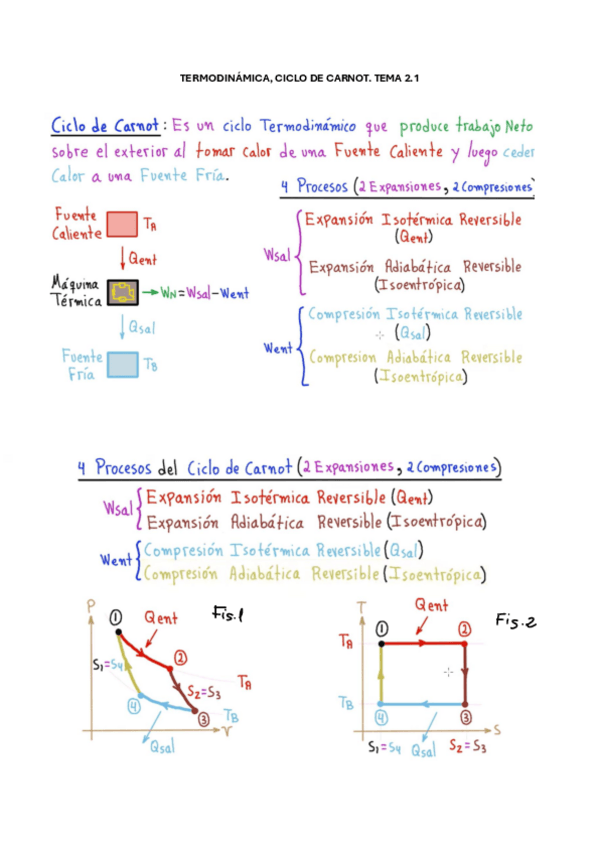 TERMODINÁMICA, CICLO DE CARNOT. TEMA 2.1
Ciclo de Carnot: Es un ciclo Termodinámico que produce trabajo Neto
sobre el exterior al tomar calor de una Fuente Caliente y luego ceder
Calor a una Fuente Fría.
4 Procesos (2 Expansiones, 2 Compresiones)
Fuente
Caliente
TA
Qent
Máquina
Térmica
WN=Wsal-Went
Qsal
Fuente
Fría
TB
Wsal
Expansión Isotérmica Reversible
(Qent)
Expansión Adiabática Reversible
(Isoentrópica)
Went
Compresión Isotérmica Reversible
(Qsal)
Compresion Adiabática Reversible
(Isoentrópica)
4 Procesos del Ciclo de Carnot (2 Expansiones, 2 Compresiones)
Wsal
Expansión Isotérmica Reversible (Qent)
Expansión Adiabática Reversible (Isoentrópica)
Went
Compresión Isotérmica Reversible (Qsal)
Compresión Adiabática Reversible (Isoentrópica)
P
1
Qent
Fig.1
2
S1=S4
TA
S2=S3
4
3
TB
V
Qsal
T
Qent
Fig.2
1
2
TA
TB
4
3
S
S1=S4
Qsal
S2=S3